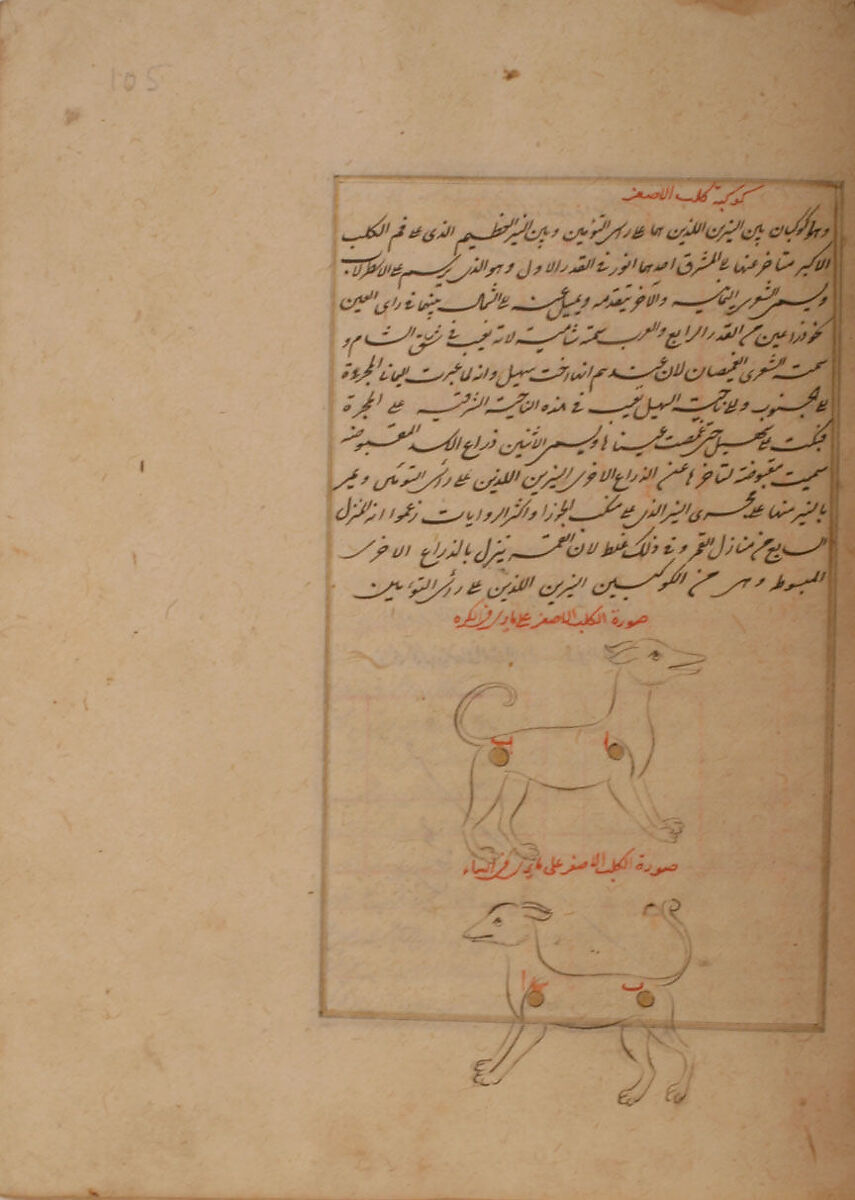 105
كوكبة كلب الاصغر
وهو كوكبان بين النيرين اللذين هما على راس التوئمين وبين النير العظيم الذى على فم الكلب
الاكبر متاخر عنهما الى المشرق احدهما انور فى القدر الاول وهو الذى يرسم على الاسطرلاب
ويسمى الشعرى الشامية والآخر يتقدمه ويميل عنه الى الشمال بينهما فى راى العين
نحو ذراعين من القدر الرابع والعرب سمته شامية لانه يغيب فى شق الشام و
سمت الشعرى الغميصان لان عندهم انها اخت سهيل وانه لما عبرت اليمانى المجرة
الى الجنوب والى ناحية السهيل بقيت فى هذه الناحية الشرقية على المجرة
فبكت على سهيل حتى غمصت عيناها ويسمى الاثنين ذراع الاسد المقبوضه
سميت مقبوضة لتاخرها عن الذراع الاخرى النيرين اللذين على راس التوئمين
بالنير منهما على مجرى النير الذى على منكب الجوزا واكثر الروايات زعموا انه المنزل
السابع من منازل القمر وفى ذلك غلط لان القمر ينزل بالذراع الاخرى
المبسوط وهى من الكوكبين النيرين اللذين على راس التوئمين
صورة الكلب الاصغر على ما يرى فى الكره
ا
ب
صورة الكلب الاصغر على ما يرى فى السماء
ا
ب